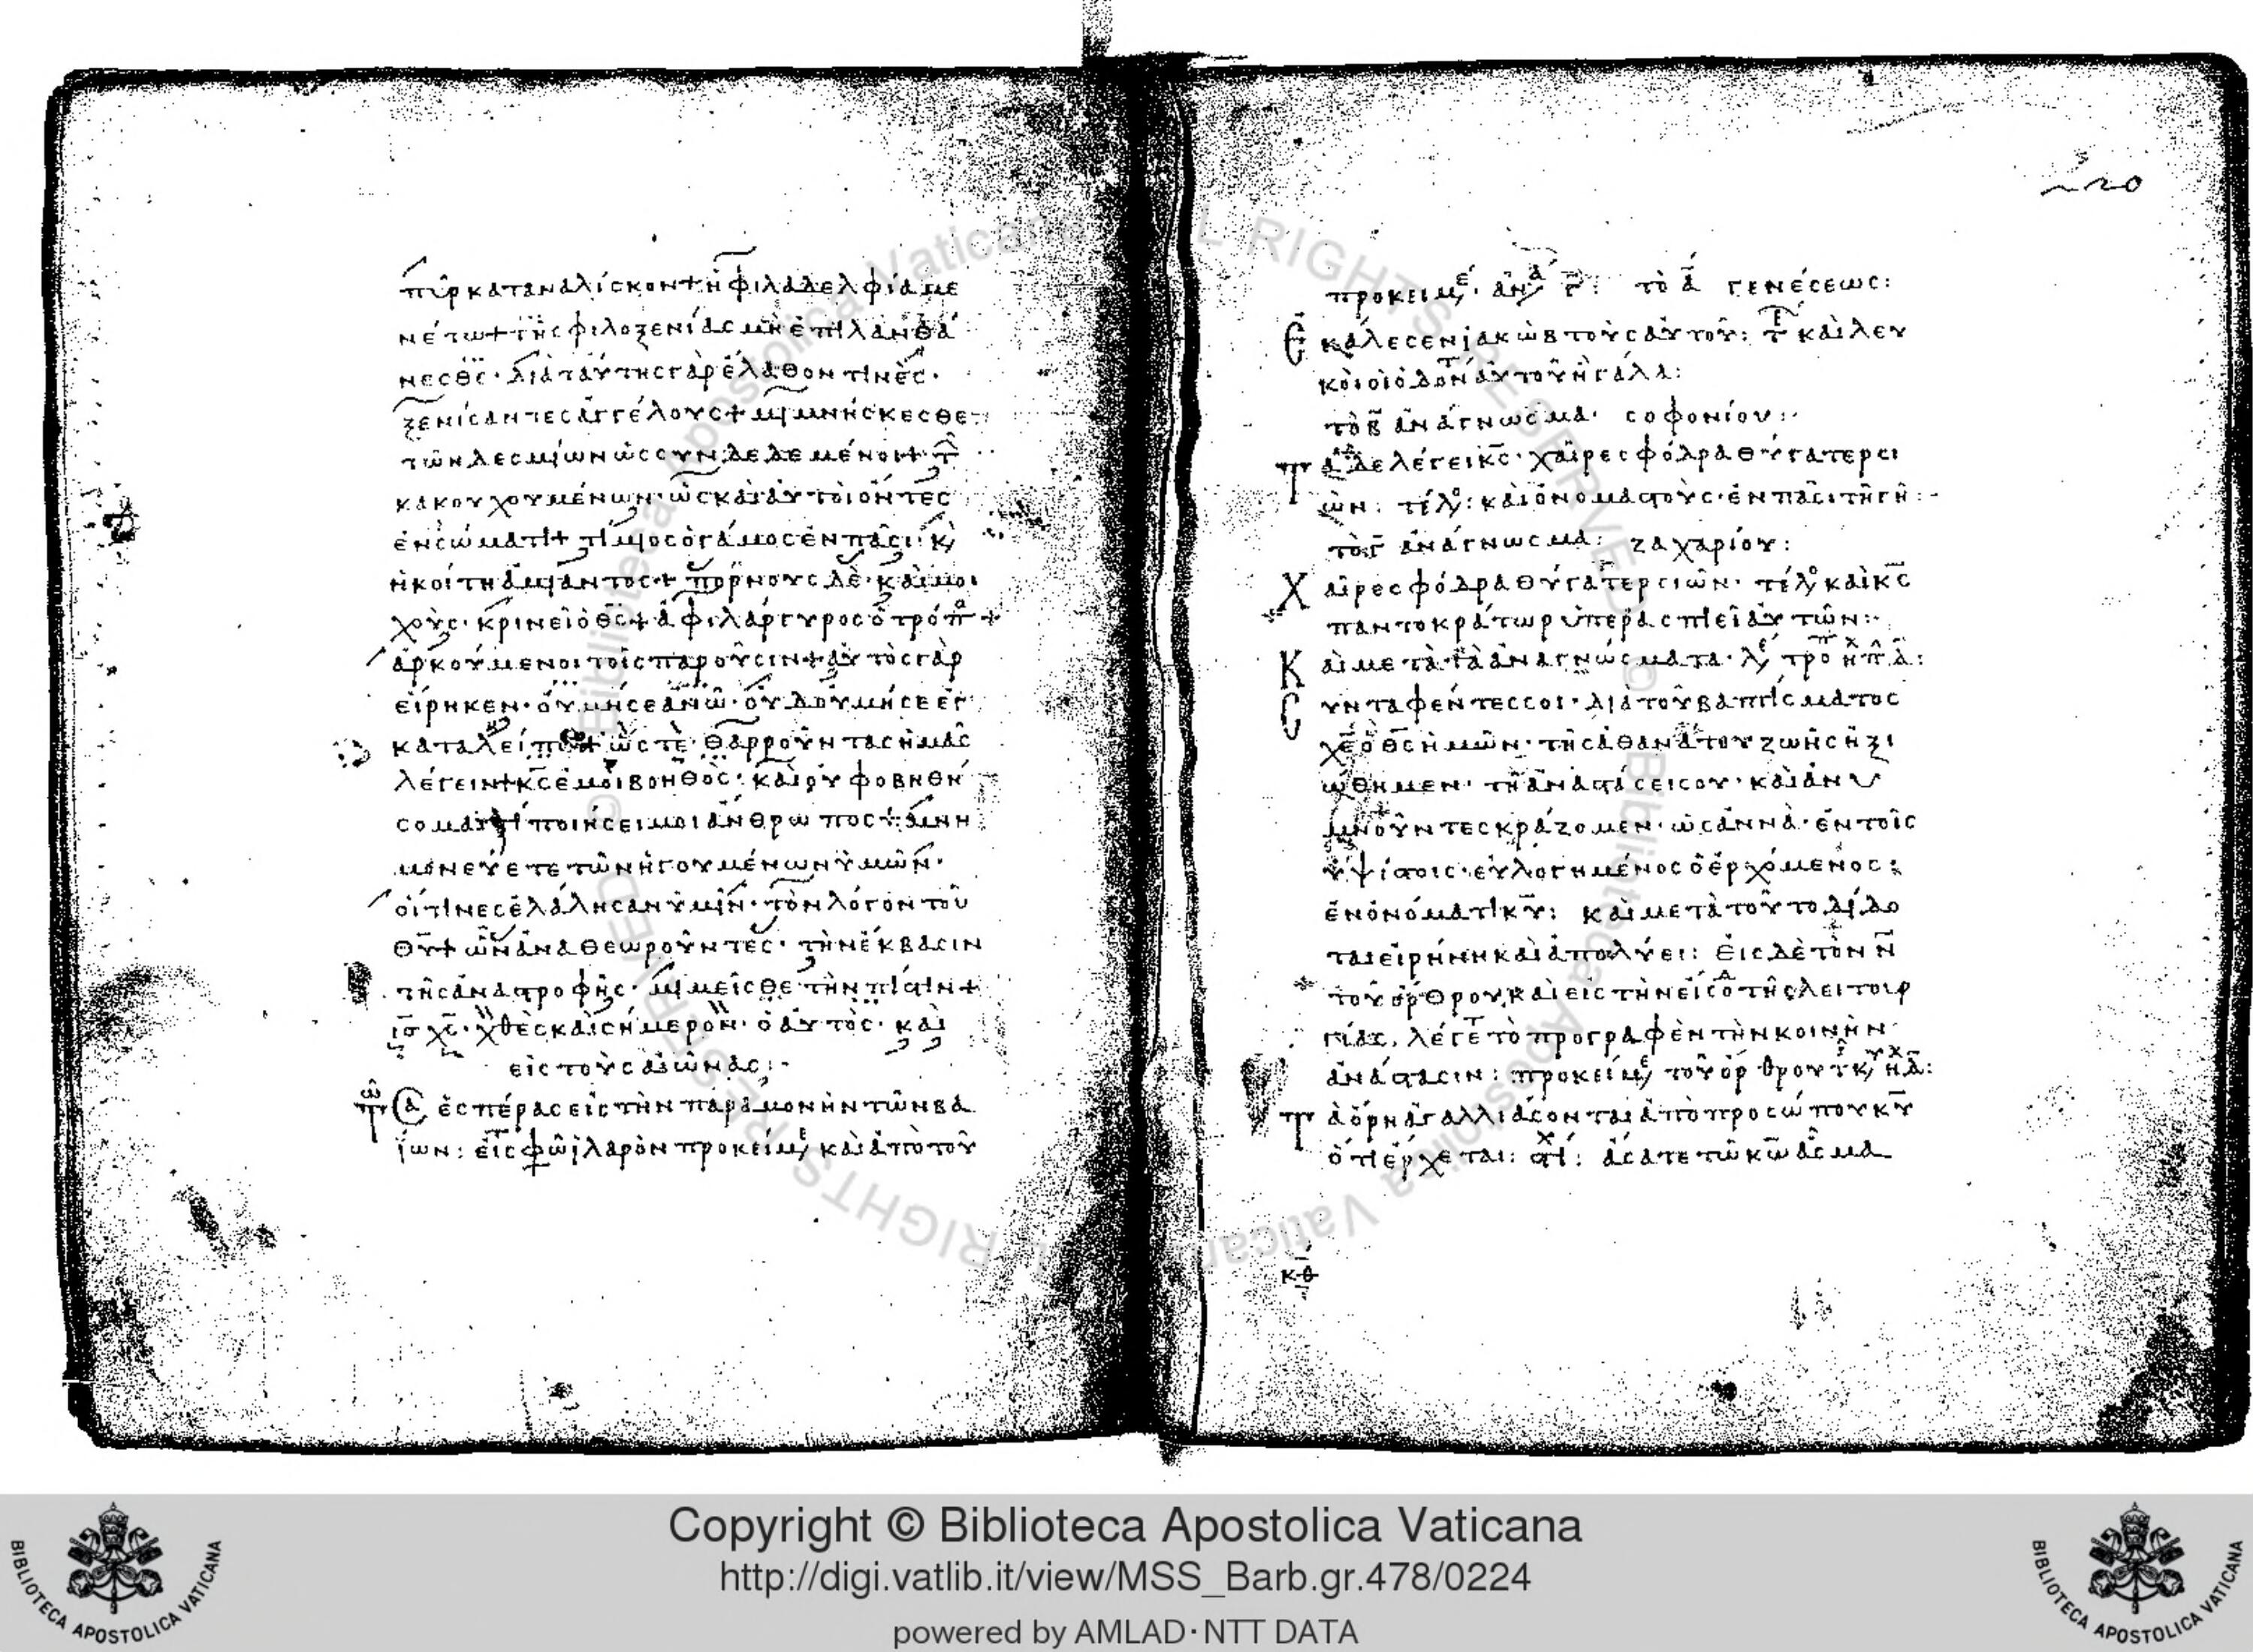 πῦρ καταναλίσκον + ἡ φιλαδελφία με
νέτω + τῆς φιλοξενίας μὴ ἐπιλανθά
νεσθε · διὰ ταύτης γὰρ ἔλαθον τινὲς ·
ξενίσαντες ἀγγέλους + μιμνήσκεσθε
τῶν δεσμίων ὡς συνδεδεμένοι + τ
κακουχουμένων · ὡς καὶ αὐτοὶ ὄντες
ἐν σώματι + τίμιος ὁ γάμος ἐν πᾶσι · κ,
ἡ κοίτη ἀμίαντος + πόρνους δὲ · καὶ μοι
χοὺς · κρινεῖ ὁ θς + ἀφιλάργυρος ὁ τρόπ +
ἀρκούμενοι τοῖς παροῦσιν + αὐτὸς γὰρ
εἴρηκεν · οὐ μή σε ἀνῶ · οὐδ οὐ μή σε ἐγ
καταλείπω + ὥστε · θαρροῦντας ἡμᾶς
λέγειν + κς ἐμοὶ βοηθὸς · καὶ οὐ φοβηθή
σομαι τί ποιήσει μοι ἄνθρωπος + μνη
μονεύετε τῶν ἡγουμένων ὑμῶν ·
οἵτινες ἐλάλησαν ὑμῖν · τὸν λόγον τοῦ
θυ + ὧν ἀναθεωροῦντες · τὴν ἔκβασιν
τῆς ἀναστροφῆς · μιμεῖσθε τὴν πίστιν +
ις χς · χθὲς καὶ σήμερον · ὁ αὐτὸς · καὶ
εἰς τοὺς αἰῶνας :
ἑσπέρας εἰς τὴν παραμονὴν τῶν βα
ίων : εἰς τ φῶς ἱλαρὸν προκείμε, καὶ ἀπὸ τοῦ
220
προκειμε, · ἀνα γ : τὸ α γενέσεως :
Ἐκάλεσεν ἰακὼβ τοὺς αὐτοῦ : τε καὶ λευ
κοὶ οἱ ὀδοντ αὐτοῦ ἢ γάλα :
τὸ β ἀνάγνωσμα · σοφονίου :
Τάδε λέγει κς · χαῖρε σφόδρα θύγατερ σι
ὼν : τέλο : καὶ ὀνομαστοὺς · ἐν πᾶσι τῇ γῇ :
τὸ γ ἀνάγνωσμα : ζαχαρίου :
Χαῖρε σφόδρα θύγατερ σιών · τέλο καὶ κς
παντοκράτωρ ὑπερασπιεῖ αὐτῶν :
Καὶ μετὰ τὰ ἀναγνώσματα · λε τρο ηχ π δ :
Συνταφέντες σοι · διὰ τοῦ βαπτίσματος
χε ὁ θς ἡμῶν · τῆς ἀθανάτου ζωῆς ἠξι
ώθημεν · τῇ ἀναστάσει σου · καὶ ἀνυ
μνοῦντες κράζομεν · ὡσαννὰ · ἐν τοῖς
ὑψίστοις · εὐλογημένος ὁ ἐρχόμενος :
ἐν ὀνόματι κυ : καὶ μετὰ τοῦτο δίδο
ται εἰρήνη καὶ ἀπολύει : Εἰς δὲ τὸν ν
τοῦ ὄρθρου καὶ εἰς τὴν εἴσοδ τῆς λειτουρ
γίας, λέγετ τὸ προγραφὲν τὴν κοινὴν
ἀνάστασιν : προκείμε, τοῦ ὄρθρου
Τὰ ὄρη ἀγαλλιάσονται ἀπὸ προσώπου κυ
ὅτι ἔρχεται : στίχ : ᾄσατε τῷ κω ᾆσμα
κθ
Copyright © Biblioteca Apostolica Vaticana
http://digi.vatlib.it/view/MSS_Barb.gr.478/0224
powered by AMLAD·NTT DATA
BIBLIOTECA APOSTOLICA VATICANA
BIBLIOTECA APOSTOLICA VATICANA